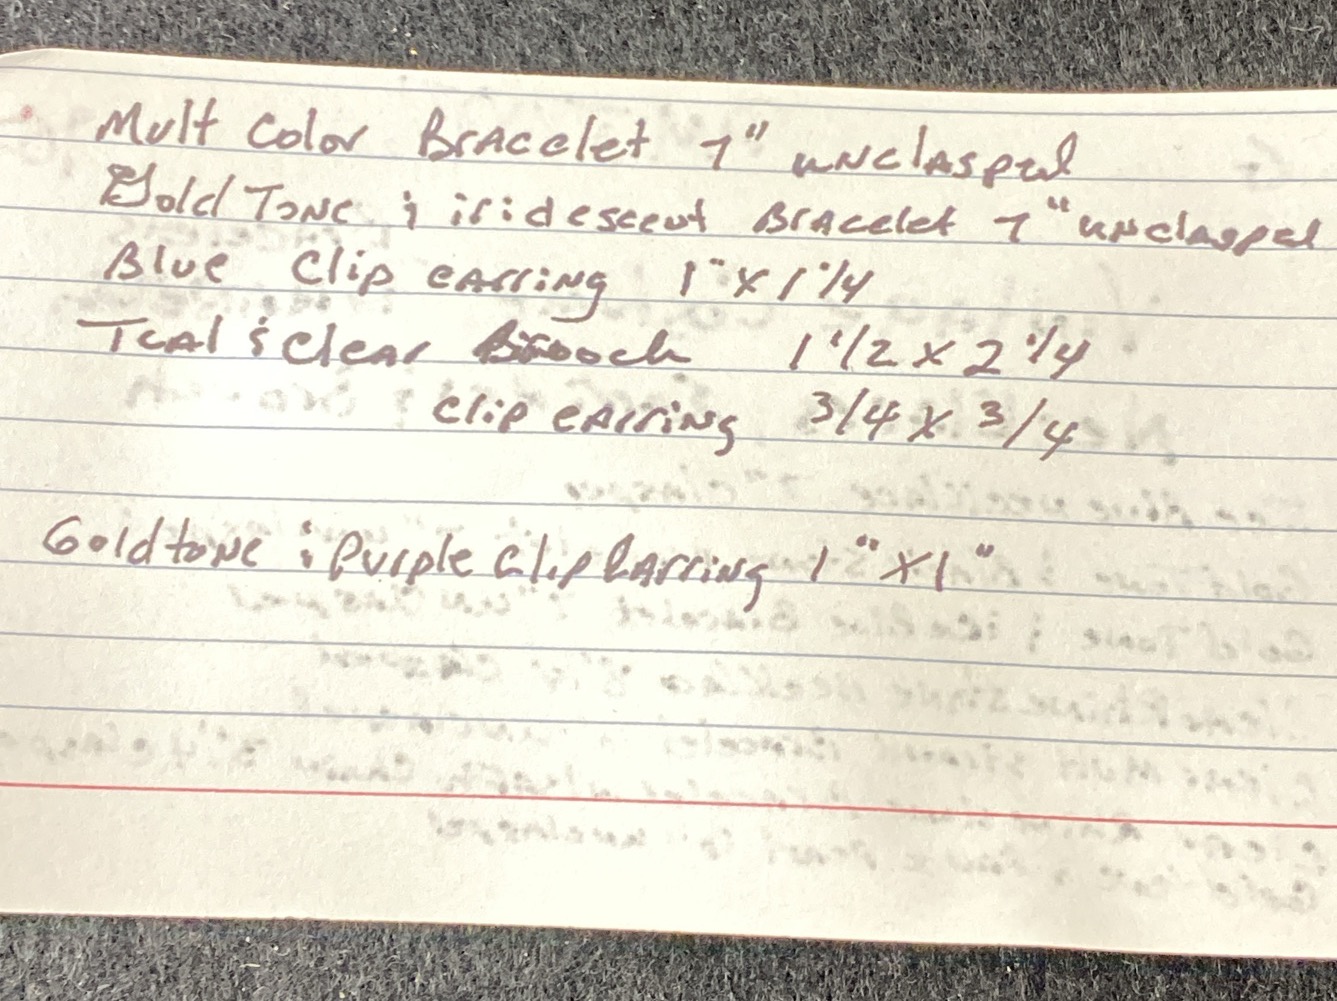 Mult Color Bracelet 7" unclasped
Gold Tone & iridescent Bracelet 7" unclasped
Blue Clip earring 1" x 1 1/4
Teal & Clear Brooch 1 1/2 x 2 1/4
Clip earring 3/4 x 3/4
Goldtone & Purple Clip Earring 1" x 1"